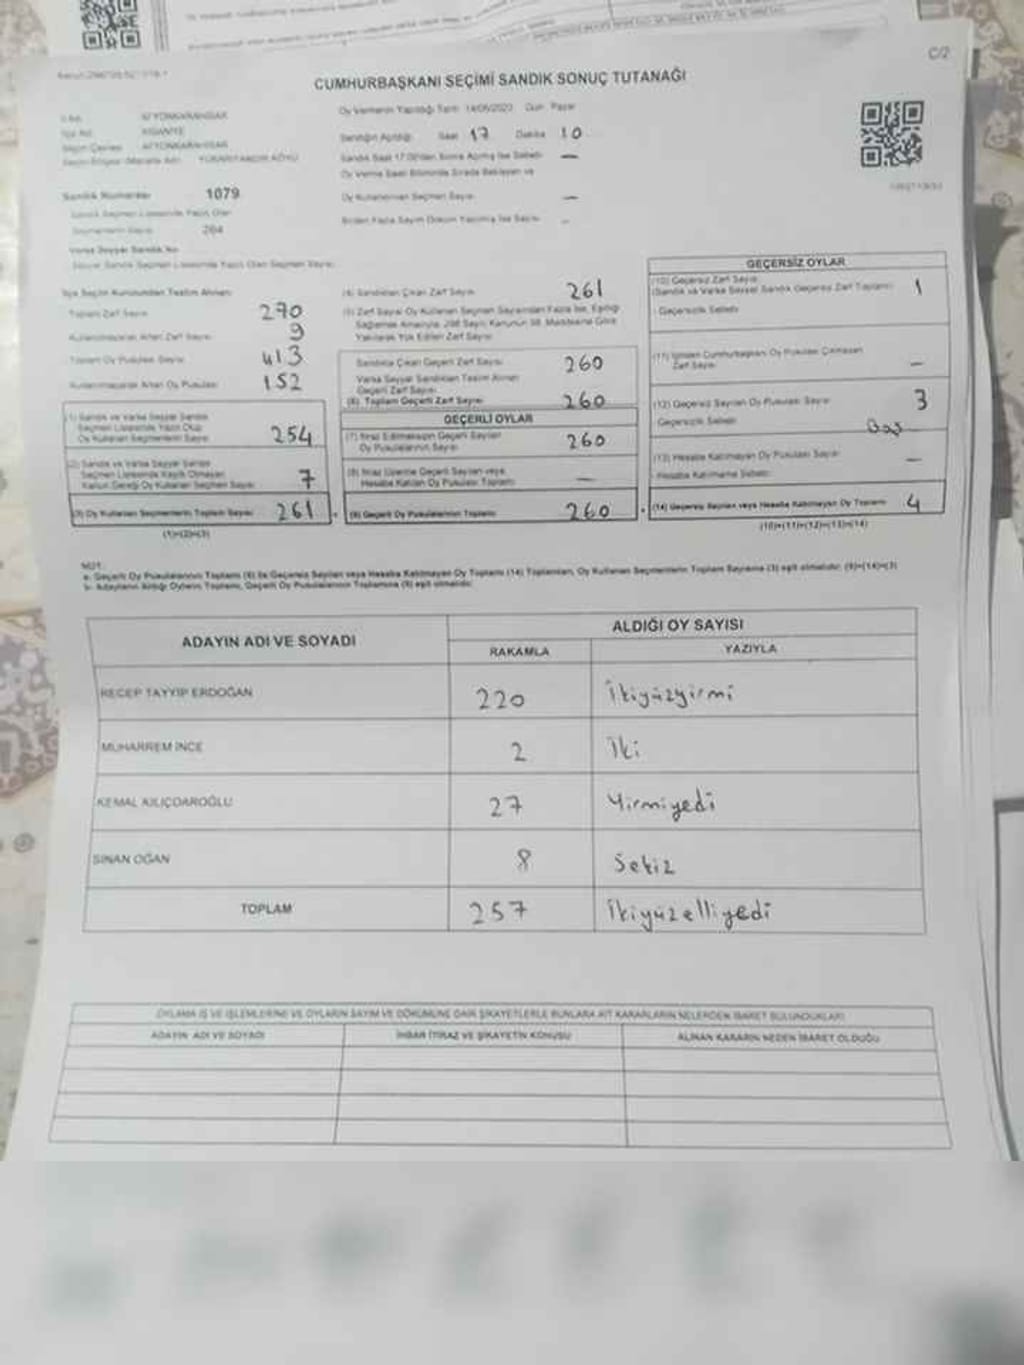 C/2
CUMHURBAŞKANI SEÇİMİ SANDIK SONUÇ TUTANAĞI
Oy Vermenin Yapıldığı Tarih: 14/05/2023 Gün: Pazar
AFYONKARAHİSAR
AFYONKARAHİSAR
Sandığın Açıldığı Saat 17 Dakika 10
Sandık Saat 17.00'den Sonra Açılmış İse Sebebi —
Oy Verme Saati Bitiminde Sırada Bekleyen ve
Oy Kullandırılan Seçmen Sayısı —
Birden Fazla Sayım Döküm Yapılmış İse Sayısı -
Sandık Numarası 1079
Sandık Seçmen Listesinde Yazılı Olan
Seçmenlerin Sayısı 264
Varsa Seyyar Sandık No
Seyyar Sandık Seçmen Listesinde Yazılı Olan Seçmen Sayısı
İlçe Seçim Kurulundan Teslim Alınan
Toplam Zarf Sayısı 270
Kullanılmayarak Artan Zarf Sayısı 9
Toplam Oy Pusulası Sayısı 413
Kullanılmayarak Artan Oy Pusulası 152
(1) Sandık ve Varsa Seyyar Sandık
Seçmen Listesinde Yazılı Olup
Oy Kullanan Seçmenlerin Sayısı 254
(2) Sandık ve Varsa Seyyar Sandık
Seçmen Listesinde Kayıtlı Olmayan
Kanun Gereği Oy Kullanan Seçmen Sayısı 7
(3) Oy Kullanan Seçmenlerin Toplam Sayısı 261
(1)+(2)=(3)
(4) Sandıktan Çıkan Zarf Sayısı 261
(5) Zarf Sayısı Oy Kullanan Seçmen Sayısından Fazla İse, Eşitliği
Sağlamak Amacıyla, 298 Sayılı Kanunun 98. Maddesine Göre
Yakılarak Yok Edilen Zarf Sayısı
Sandıkta Çıkan Geçerli Zarf Sayısı 260
Varsa Seyyar Sandıktan Teslim Alınan
Geçerli Zarf Sayısı
(6) Toplam Geçerli Zarf Sayısı 260
GEÇERLİ OYLAR
(7) İtiraz Edilmeksizin Geçerli Sayılan
Oy Pusulalarının Sayısı 260
(8) İtiraz Üzerine Geçerli Sayılan veya
Hesaba Katılan Oy Pusulası Toplamı —
(9) Geçerli Oy Pusulalarının Toplamı 260
GEÇERSİZ OYLAR
(10) Geçersiz Zarf Sayısı
(Sandık ve Varsa Seyyar Sandık Geçersiz Zarf Toplamı) 1
Geçersizlik Sebebi:
(11) İçinden Cumhurbaşkanı Oy Pusulası Çıkmayan
Zarf Sayısı —
(12) Geçersiz Sayılan Oy Pusulası Sayısı 3
Geçersizlik Sebebi: Boş
(13) Hesaba Katılmayan Oy Pusulası Sayısı —
Hesaba Katılmama Sebebi:
(14) Geçersiz Sayılan veya Hesaba Katılmayan Oy Toplamı 4
(10)+(11)+(12)+(13)=(14)
NOT:
a- Geçerli Oy Pusulalarının Toplamı (9) ile Geçersiz Sayılan veya Hesaba Katılmayan Oy Toplamı (14) Toplamları, Oy Kullanan Seçmenlerin Toplam Sayısına (3) eşit olmalıdır. (9)+(14)=(3)
b- Adayların Aldığı Oyların Toplamı, Geçerli Oy Pusulalarının Toplamına (9) eşit olmalıdır.
ADAYIN ADI VE SOYADI
ALDIĞI OY SAYISI
RAKAMLA YAZIYLA
RECEP TAYYİP ERDOĞAN 220 İkiyüzyirmi
MUHARREM İNCE 2 İki
KEMAL KILIÇDAROĞLU 27 Yirmiyedi
SİNAN OĞAN 8 Sekiz
TOPLAM 257 İkiyüzelliyedi
OYLAMA İŞ VE İŞLEMLERİNE VE OYLARIN SAYIM VE DÖKÜMÜNE DAİR ŞİKAYETLERLE BUNLARA AİT KARARLARIN NELERDEN İBARET BULUNDUKLARI
ADAYIN ADI VE SOYADI İHBAR İTİRAZ VE ŞİKAYETİN KONUSU ALINAN KARARIN NEDEN İBARET OLDUĞU